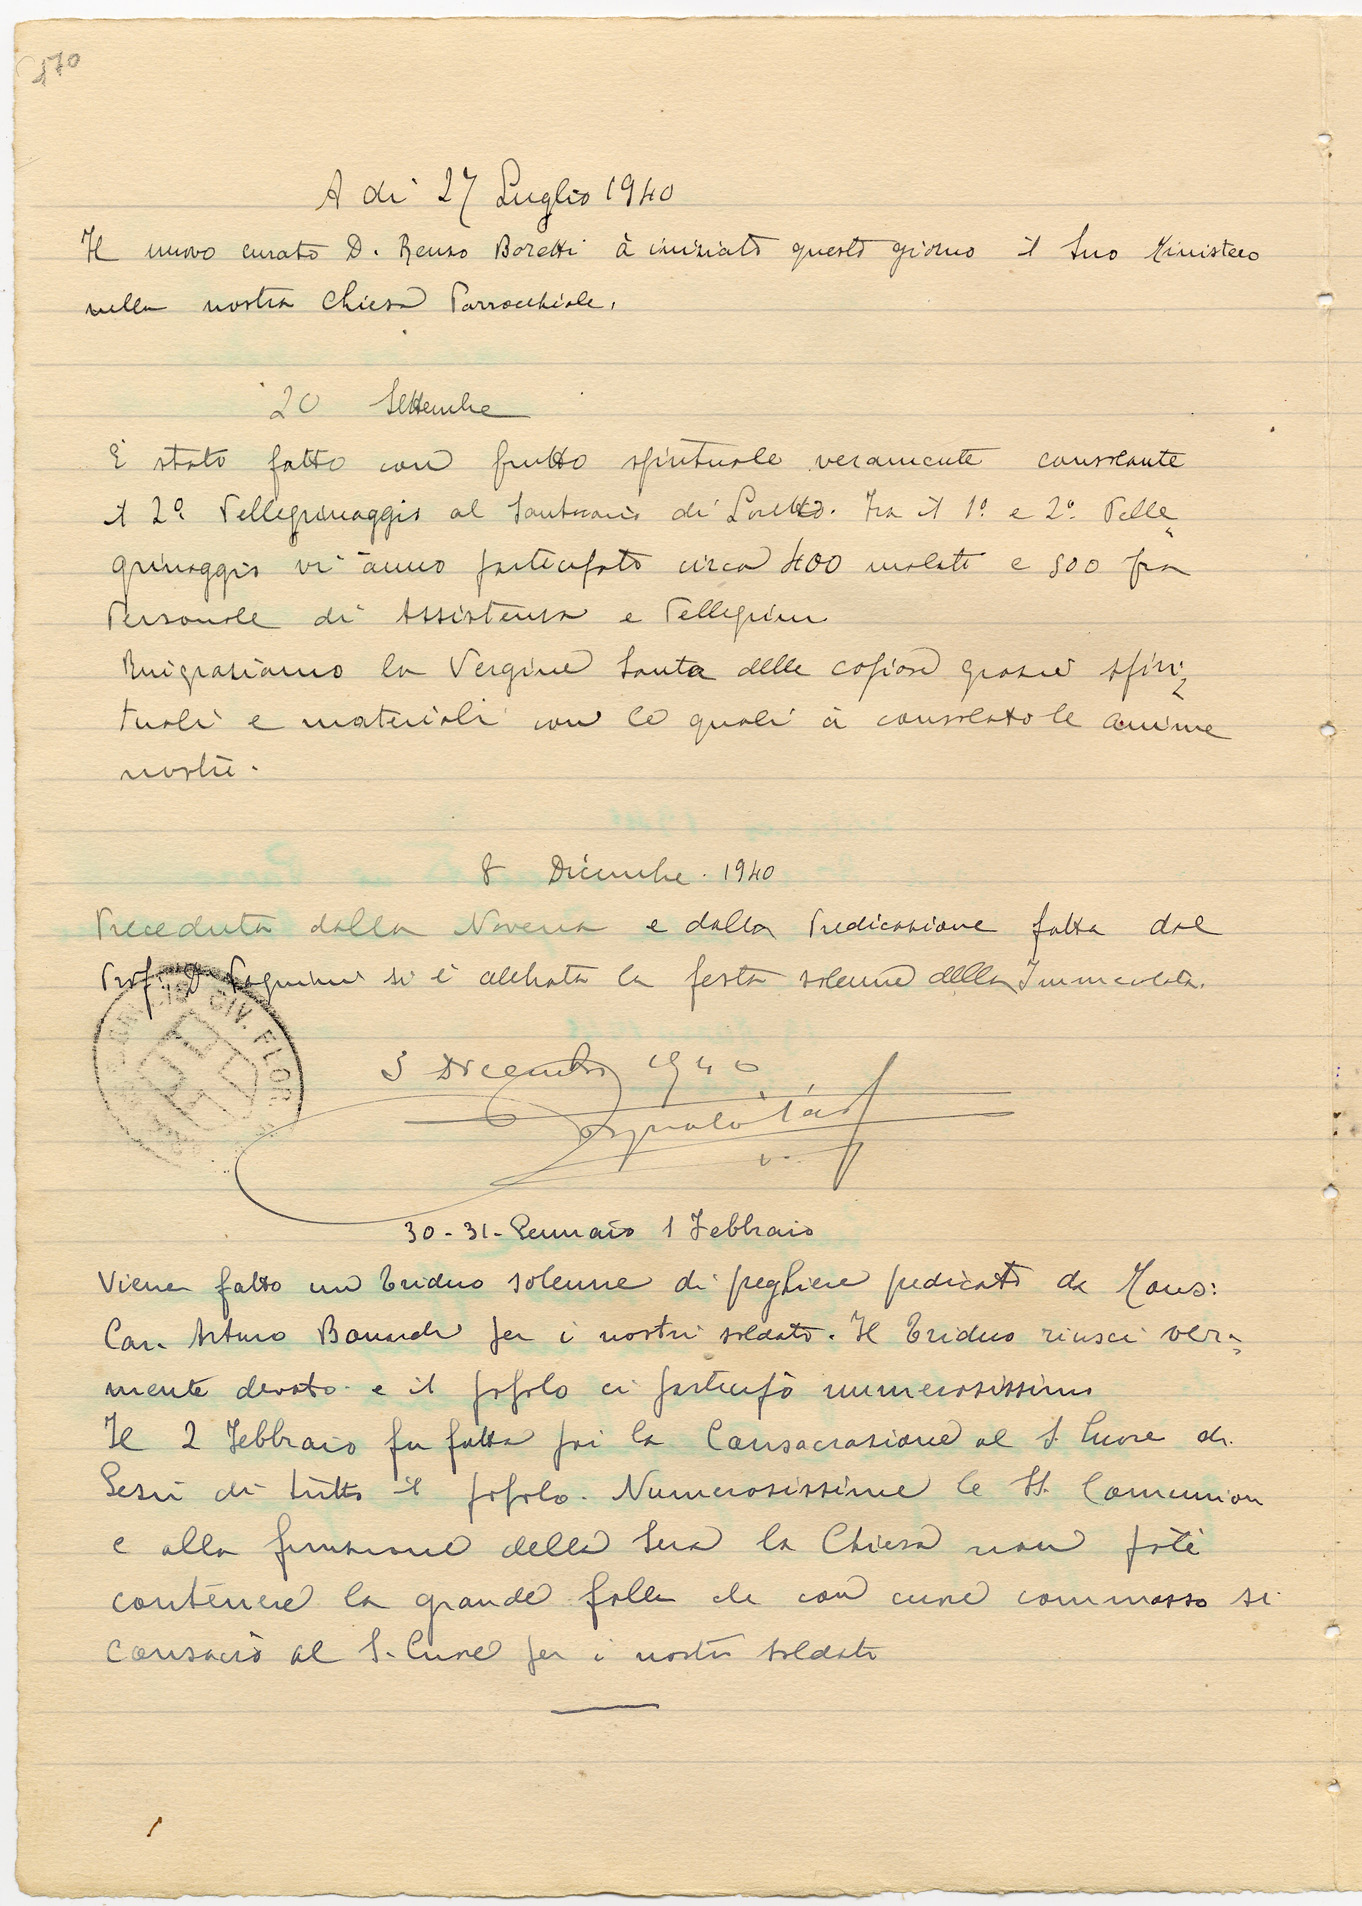 170
A di 27 Luglio 1940
Il nuovo curato D. Renzo Boretti à iniziato questo giorno il Suo Ministero
nella nostra Chiesa Parrocchiale.
20 Settembre
È stato fatto con frutto spirituale veramente consolante
il 2º Pellegrinaggio al Santuario di Loreto. Fra il 1º e 2º Pelle
grinaggio vi ànno partecipato circa 400 malati e 800 fra
Personale di Assistenza e Pellegrini
Ringraziamo la Vergine Santa delle copiose grazie spiri
tuali e materiali con le quali à consolato le anime
nostre.
8 Dicembre. 1940
Preceduta dalla Novena e dalla Predicazione fatta dal
Prof. D. Pagnini si è celebrata la festa solenne della Immacolata.
CIV. FLOR
3 Dicembre 1940
30-31-Gennaio 1 Febbraio
Viene fatto un triduo solenne di preghiere predicato da Mons:
Can. Arturo Bonardi per i nostri soldati. Il triduo riuscì vera
mente devoto e il popolo ci partecipò numerosissimo
Il 2 Febbraio fu fatta poi la Consacrazione al S. Cuore di
Gesù di tutto il popolo. Numerosissime le SS. Comunioni
e alla funzione della Sera la Chiesa non potè
contenere la grande folla che con cuore commosso si
consacrò al S. Cuore per i nostri soldati